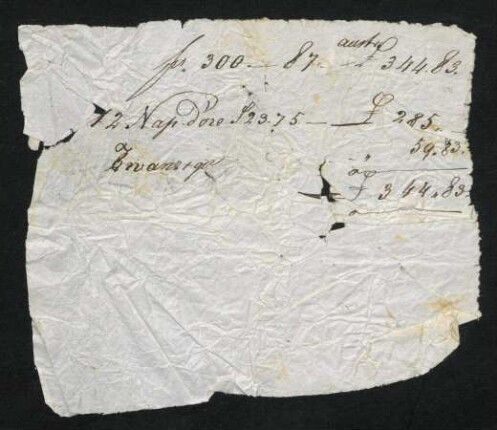 fr. 300 — 87 — austr £ 344.83.
12 Nap. d'oro £ 23.75 — £ 285.
Zwanziger 59.83.
£ 344.83